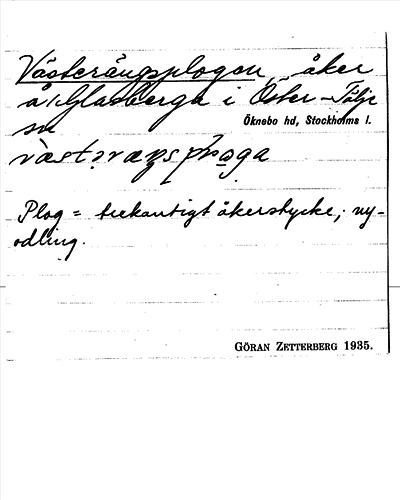 Västerängsplogen, åker
å Glasberga i Öster-Tälje
sn Öknebo hd, Stockholms l.
Plog = trekantigt åkerstycke; ny-
odling.
GÖRAN ZETTERBERG 1935.